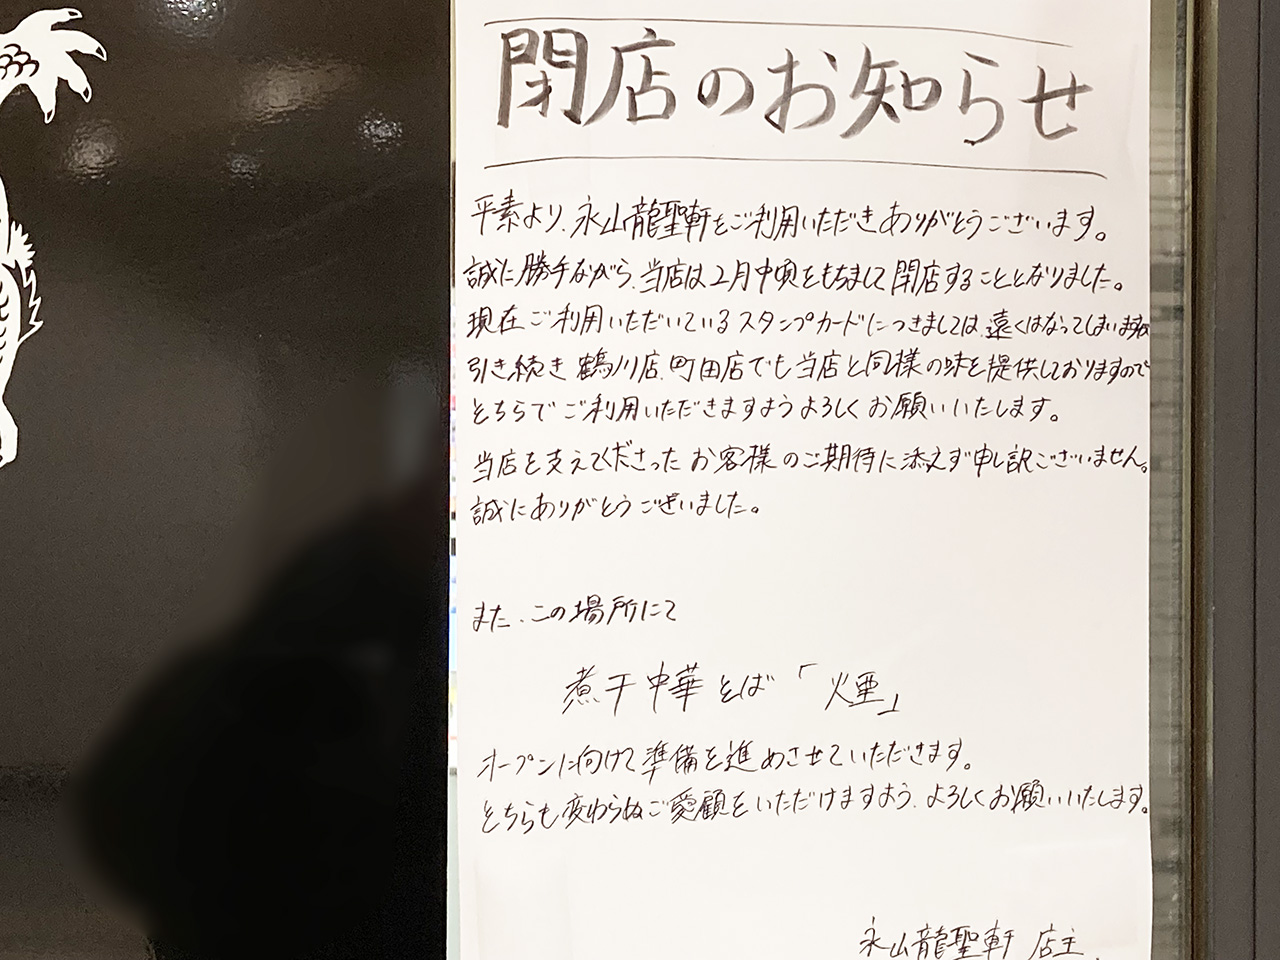 閉店のお知らせ
平素より、永山龍聖軒をご利用いただきありがとうございます。
誠に勝手ながら、当店は2月中頃をもちまして閉店することとなりました。
現在ご利用いただいているスタンプカードにつきましては、遠くはなってしまいますが
引き続き鶴川店、町田店でも当店と同様の味を提供しておりますので
そちらでご利用いただきますようよろしくお願いいたします。
当店を支えてくださったお客様のご期待に添えず申し訳ございません。
誠にありがとうございました。
また、この場所にて
煮干中華そば「煙」
オープンに向けて準備を進めさせていただきます。
そちらも変わらぬご愛顧をいただけますよう、よろしくお願いいたします。
永山龍聖軒 店主